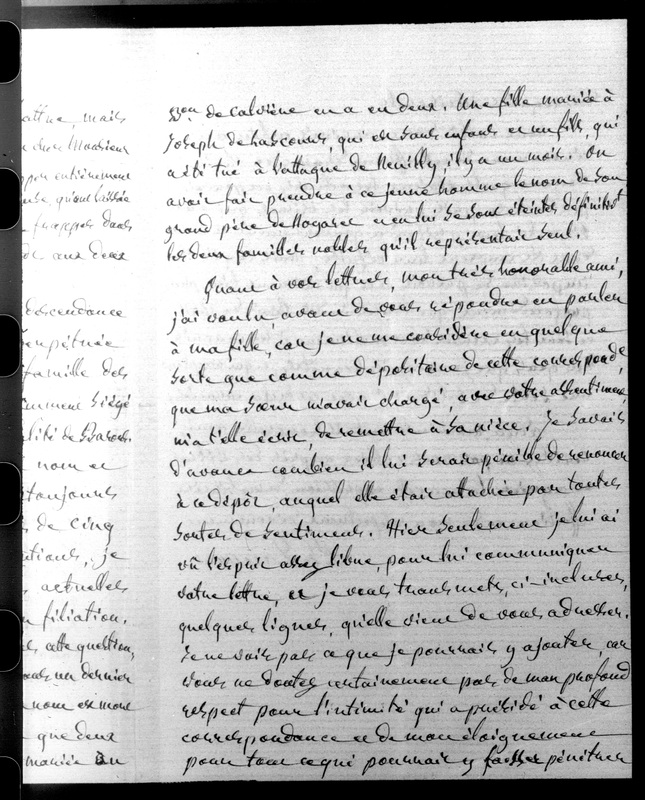 attue, mais
cher Monsieur
entièrement
qu'ont laissée
frapper dans
aux deux
descendance
perpétuée
famille des
siégé
alité de Barons.
nom et
toujours
de cinq
je
actuelles
filiation.
cette question,
un dernier
nom est mort
que deux
mariée
Bon de Calvière en a eu deux. Une fille mariée à
Joseph de Lascours, qui est sans enfants et un fils, qui
a été tué à l'attaque de Neuilly, il y a un mois. On
avait fait prendre à ce jeune homme le nom de son
grand père de Nogaret et en lui se sont éteintes définitivt
les deux familles nobles qu'il représentait seul.
Quant à vos lettres, mon très honorable ami,
j'ai voulu, avant de vous répondre en parler
à ma fille, car je ne me considère en quelque
sorte que comme dépositaire de cette correspondce
que ma sœur m'avait chargé, avec votre assentiment,
m'a t'elle écrit, de remettre à sa nièce. Je savais
d'avance combien il lui serait pénible de renoncer
à ce dépôt, auquel elle était attachée par toutes
sortes de sentiments. Hier seulement je lui ai
vû l'esprit assez libre, pour lui communiquer
votre lettre, et je vous transmets, ci-incluses,
quelques lignes, qu'elle vient de vous adresser.
Je ne vois pas ce que je pourrais y ajouter, car
vous ne doutez certainement pas de mon profond
respect pour l'intimité qui a présidé à cette
correspondance et de mon éloignement
pour tout ce qui pourrait y faisser pénétrer